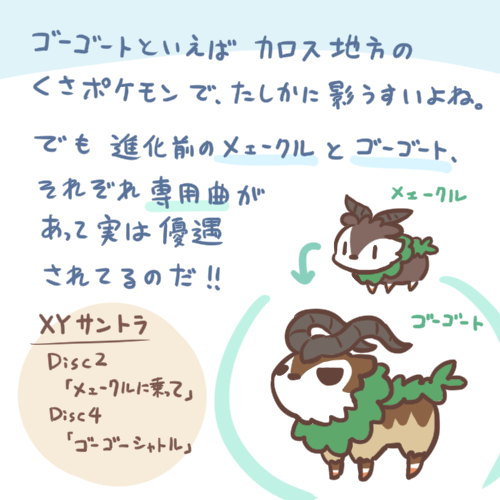 ゴーゴートといえば カロス地方の
くさポケモンで、たしかに影うすいよね。
でも 進化前のメェークルとゴーゴート、
それぞれ専用曲が
あって実は優遇
されてるのだ!!
メェークル
ゴーゴート
XYサントラ
Disc2
「メェークルに乗って」
Disc4
「ゴーゴーシャトル」